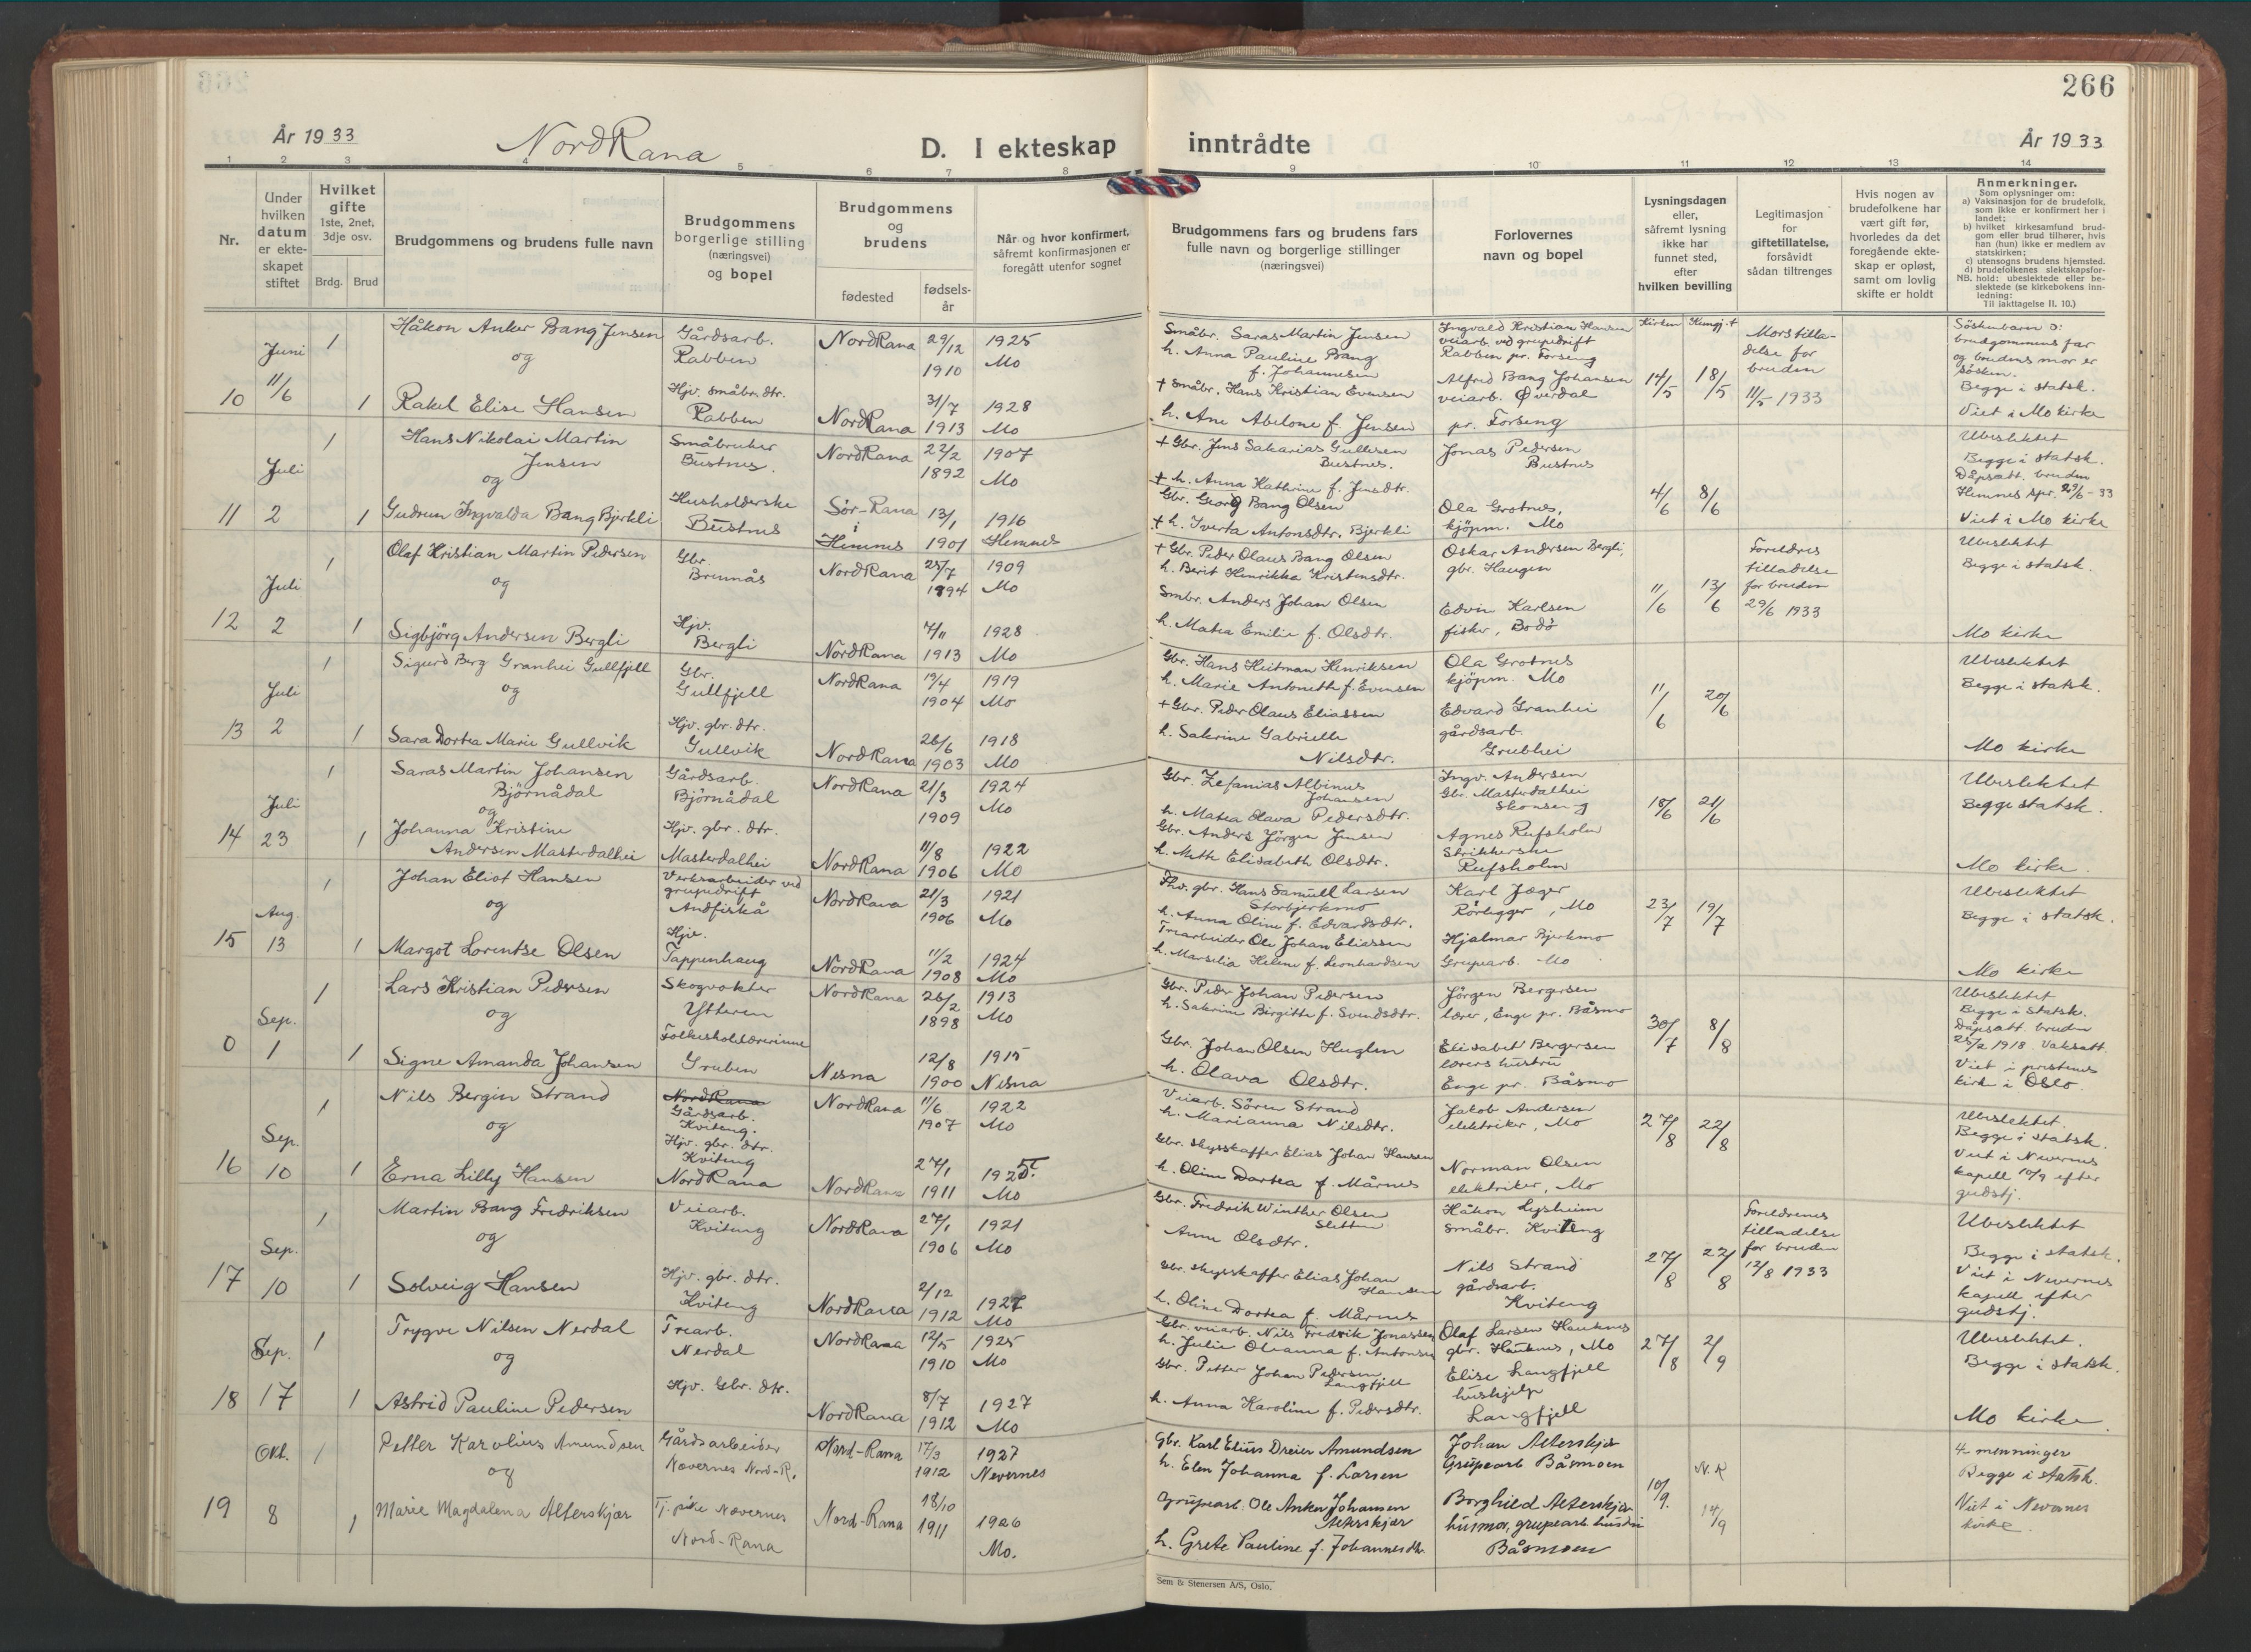 266
År 1933
NordRana
D. I ekteskap inntrådte
År 1933
1 2 3 4 5 6 7 8 9 10 11 12 13 14
Nr.
Under hvilken datum er ekteskapet stiftet
Hvilket gifte 1ste, 2net, 3dje osv.
Brdg. Brud
Brudgommens og brudens fulle navn
Brudgommens borgerlige stilling (næringsvei) og bopel
Brudgommens og brudens
fødested
fødselsår
Når og hvor konfirmert, såfremt konfirmasjonen er foregått utenfor sognet
Brudgommens fars og brudens fars fulle navn og borgerlige stillinger (næringsvei)
Forlovernes navn og bopel
Lysningsdagen eller, såfremt lysning ikke har funnet sted, efter hvilken bevilling
Legitimasjon for giftetillatelse, forsåvidt sådan tiltrenges
Hvis nogen av brudefolkene har vært gift før, hvorledes da det foregående ekteskap er opløst, samt om lovlig skifte er holdt
Anmerkninger.
Som oplysninger om:
a) Vaksinasjon for de brudefolk, som ikke er konfirmert her i landet;
b) hvilket kirkesamfund brudgom eller brud tilhører, hvis han (hun) ikke er medlem av statskirken;
c) utensogns brudens hjemsted.
d) brudefolkenes slektskapsforhold: ubeslektede eller beslektede (se kirkebokens innledning:
NB. Til iakttagelse II. 10.)
10 Juni 11/6 1 1
Håkon Anker Bang Jensen
og
Rakel Elise Hansen
Gårdsarb. Rabben
Hjv. småbr. dtr. Rabben
NordRana 29/12 1910 1925 Mo
NordRana 31/7 1913 1928 Mo
Småbr. Saras Martin Jensen
h. Anna Pauline Bang f. Johannesen
† Småbr. Hans Kristian Evensen
h. Ane Abelone f. Jensen
Ingvald Kristian Hansen
veiarb. ved grupedrift
Rabben pr. Forseng
Alfred Bang Johansen
veiarb. Øverdal
pr. Forseng
Kirken 14/5 18/5
Morstilladelse for bruden 11/5 1933
Söskenbarn o: brudgommens far og brudens mor er søsken.
Begge i statsk.
Viet i Mo kirke
11 Juli 2 1 1
Hans Nikolai Martin Jensen
og
Gudrun Ingvalda Bang Bjerkli
Småbruker Bustnes.
Husholderske Bustnes
NordRana 22/2 1892 1907 Mo
Sör-Rana i Hemnes 13/1 1901 1916 Hemnes
† Gbr. Jens Sakarias Gullesen Bustnes.
† h. Anna Kathrine f. Jensdtr.
Gbr. Georg Bang Olsen
† h. Iverta Antonsdtr. Bjerkli
Jonas Pedersen Bustnes
Ola Grotnes, kjöpm. Mo
4/6 8/6
Ubeslektet
Begge i statsk.
Dåpsatt. bruden
Hemnes spr. 29/6-33
Viet i Mo kirke
12 Juli 2 1 1
Olaf Kristian Martin Pedersen
og
Sigbjörg Andersen Bergli
Gbr. Brennås
Hjv. Bergli
NordRana 25/7 1894 1909 Mo
NordRana 7/11 1913 1928 Mo
† Gbr. Peder Olaus Bang Olsen
h. Berit Henrikka Kristensdtr.
Smbr. Anders Johan Olsen
h. Matea Emilie f. Olsdtr.
Oskar Andersen Bergli, gbr. Haugen
Edvin Karlsen
fisker, Bodö
11/6 13/6
Foreldres tilladelse for bruden 29/6 1933
Ubeslektet
Begge i statsk.
Mo kirke
13 Juli 2 1 1
Sigurd Berg Granhei Gullfjell
og
Sara Dortea Marie Gullvik
Gbr. Gullfjell
Hjv. gbr. dtr. Gullvik
NordRana 19/4 1904 1919 Mo
NordRana 26/6 1903 1918 Mo
Gbr. Hans Heitman Henriksen
h. Marie Antoneth f. Evensen
† Gbr. Peder Olaus Eliassen
h. Sakrine Gabrielle Nilsdtr.
Ola Grotnes kjöpm. Mo
Edvard Granhei
gårdsarb. Grubhei
11/6 20/6
Ubeslektet
Begge i statsk.
Mo kirke
14 Juli 23 1 1
Saras Martin Johansen Björnådal
og
Johanna Kristine Andersen Masterdalhei
Gårdsarb. Björnådal
Hjv. gbr. dtr. Masterdalhei
NordRana 21/3 1909 1924 Mo
NordRana 11/8 1906 1922 Mo
Gbr. Zefanias Albinus Johansen
h. Matea Olava Pedersdtr.
Gbr. Anders Jörgen Jensen
h. Meth Elisabeth Olsdtr.
Ingv. Andersen
Gbr. Masterdalhei Skonseng
Agnes Rufsholm
Strikkerske
Rufsholm
18/6 21/6
Ubeslektet
Begge statsk.
Mo kirke.
15 Aug. 13 1 1
Johan Eliot Hansen
og
Margot Lorentse Olsen
Verksarbeider ved grupedrift Andfiskå
Hjv. Tappenhaug
NordRana 21/3 1906 1921 Mo
NordRana 11/2 1908 1924 Mo
Fhv. gbr. Hans Samuell Larsen Storbjerkmo
h. Anna Oline f. Edvardsdtr.
Trearbeider Ole Johan Eliassen
h. Marselia Helene f. Leonhardsen
Karl Jæger
Rörlegger, Mo
Hjalmar Bjerkmo
Grupearb. Mo
23/7 19/7
Ubeslektet
Begge i statsk.
Mo kirke
0 Sep. 1 1 1
Lars Kristian Pedersen
og
Signe Amanda Johansen
Skogvokter Ytteren
Folkeskolelærerinne Gruben
NordRana 26/2 1898 1913 Mo
Nesna 12/8 1900 1915 Nesna
Gbr. Peder Johan Pedersen
h. Sakrine Birgitte f. Svendsdtr.
Gbr. Johan Olsen Huglen
h. Olava Olsdtr.
Jörgen Bergersen
lærer, Enge pr. Båsmo
Elisabet Bergersen
lærers hustru
Enge pr. Båsmo
30/7 8/8
Ubeslektet
Begge i statsk.
Dåpsatt. bruden
25/2 1918. Vaksatt.
Viet i prestenes kirke i Oslo.
16 Sep. 10 1 1
Nils Bergin Strand
og
Erna Lilly Hansen
NordRana
Gårdsarb. Kviteng.
Hjv. gbr. dtr. Kviteng
NordRana
NordRana 11/6 1907 1922 Mo
NordRana 27/1 1911 1925 Mo
Veiarb. Sören Strand
h. Marianna Nilsdtr.
Gbr. skysskaffer Elias Johan Hansen
h. Oline Dortea f. Mårnes
Jakob Andersen
elektriker, Mo
Norman Olsen
elektriker, Mo
27/8 22/8
Ubeslektet.
Begge i statsk.
Viet i Nevernes kapell 10/9 efter gudstj.
17 Sep. 10 1 1
Martin Bang Fredriksen
og
Solveig Hansen
Veiarb. Kviteng
Hjv. gbr. dtr. Kviteng
NordRana 27/1 1906 1921 Mo
NordRana 2/12 1912 1927 Mo
Gbr. Fredrik Winther Olsen Sletten
Anne Olsdtr.
Gbr. skysskaffer Elias Johan Hansen
h. Oline Dortea f. Mårnes
Håkon Lysheim
Småbr. Kviteng
Nils Strand
gårdsarb. Kviteng
27/8 22/8
Foreldrenes tilladelse for bruden 12/8 1933
Ubeslektet
Begge i statsk.
Viet i Nevernes kapell efter gudstj.
18 Sep. 17 1 1
Trygve Nilsen Nerdal
og
Astrid Pauline Pedersen
Trearb. Nerdal
Hjv. Gbr. dtr.
NordRana 12/5 1910 1925 Mo
NordRana 8/7 1912 1927 Mo
Gbr. veiarb. Nils Fredrik Jonassen
h. Julie Oleanna f. Antonsen
Gbr. Petter Johan Pedersen Langfjell
h. Anna Karoline f. Pedersdtr.
Olaf Larsen Hauknes
gbr. Hauknes, Mo
Elise Langfjell
hushjelp
Langfjell
27/8 2/9
Ubeslektet.
Begge i statsk.
Mo kirke
19 Okt. 8 1 1
Petter Karolius Amundsen
og
Marie Magdalena Alterskjær
Gårdsarbeider Nævernes Nord-R.
Tj. pike Nævernes Nord-Rana
Nord-Rana 17/3 1912 1927 Nevernes
Nord-Rana 18/10 1911 1926 Mo.
Gbr. Karl Elius Dreier Amundsen
h. Elen Johanna f. Larsen
Grupearb. Ole Anker Johansen Alterskjær
h. Grete Pauline f. Johannesdtr.
Johan Alterskjær
Grupearb Båsmoen
Borghild Alterskjær
husmor, grupearb. hustru
Båsmoen
10/9. N.R 14/9
4-menninger
Begge i statsk.
Viet i Nevernes kirke.
Sem & Stenersen A/S, Oslo.